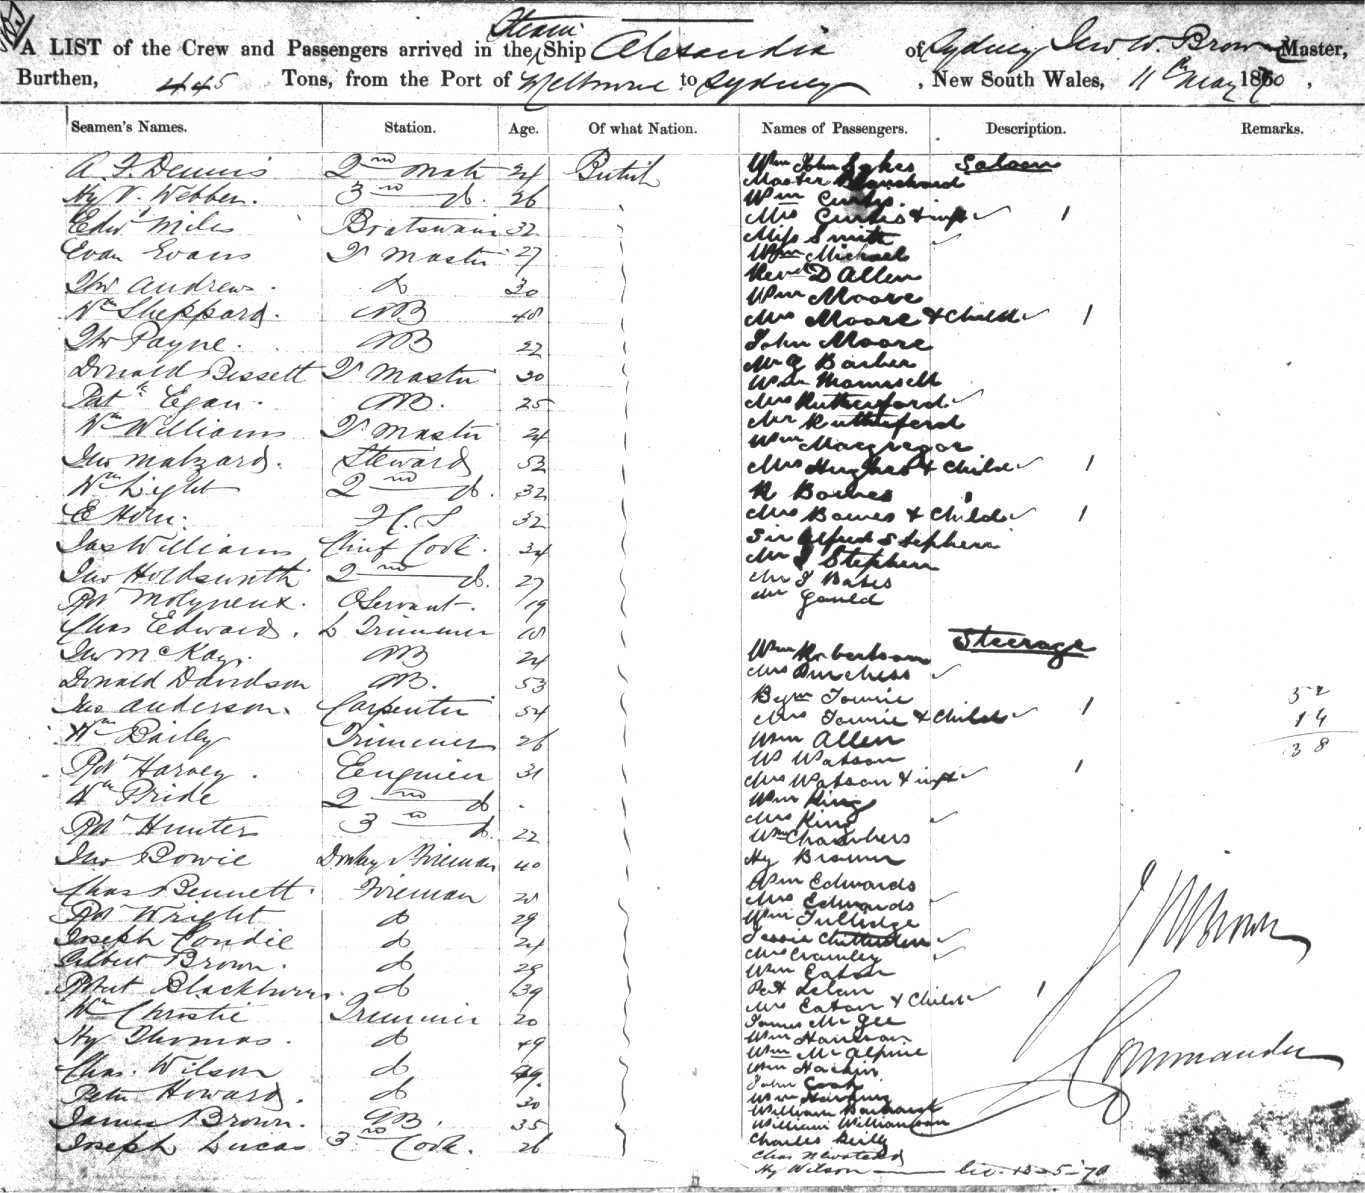 A LIST of the Crew and Passengers arrived in the Steam Ship Alexandra of Sydney Jno W. Brown Master,
Burthen, 445 Tons, from the Port of Melbourne to Sydney, New South Wales, 11th May 1870,
Seamen's Names. Station. Age. Of what Nation. Names of Passengers. Description. Remarks.
A. F. Dennis 2nd Mate 24 British
Hy V. Webber. 3rd do. 26
Edwd Miles Boatswain 32
Evan Evans Qr Master 27
Thos Andrews. do 30
Wm Sheppard. AB 48
Thos Payne. AB 22
Donald Bissett Qr Master 30
Patk Egan. AB. 25
Wm Williams Qr Master 24
Jno Matzard. Steward 52
Wm Light 2nd do. 32
E Horn. F.C.S 32
Jas Williams Chief Cook. 34
Jno Holdsworth 2nd do. 27
Rbt Molyneux. Servant. 19
Chas Edwards. Trimmer 18
Jno McKay. AB 24
Donald Davidson AB. 53
Jas Anderson. Carpenter 54
Wm Bailey Trimmer 26
Robt Harvey. Engineer 31
Wm Pride 2nd do
Robt Hunter 3rd do. 22
Jno Bowie Donkey Fireman 40
Chas Bennett. Fireman 28
Robt Wright do 29
Joseph Condie do 24
Gilbert Brown. do 29
Robert Blackburn. do 39
Wm Christie Trimmer 20
Hy Thomas. do 49
Chas. Wilson do
Peter Howard. do 30
James Brown. AB. 35
Joseph Lucas 3rd Cook. 26
Wm John Sykes Saloon
Master Blanchard
Wm Curtis.
Mrs Curtis & inft 1
Miss Smith
Wm Michael
Revd D Allen
Wm Moore
Mrs Moore & Child 1
John Moore
Mr G Barber
Wm
Mrs Rutherford
Mr Rutherford
Wm Macgregor
Mrs Hughes & Child 1
R Barnes
Mrs Barnes & Child 1
Sir Alfred Stephen
Mr J Stephen
Mr J Bates
Mr Gould
Steerage
Wm Robertson
Mrs Purchess
Bejm Townie
Mrs Townie & Child 1
Wm Allen
W Watson
Mrs Watson & inft 1
Wm King
Mrs King
Wm Chambers
Hy Brown
Wm Edwards
Mrs Edwards
Wm Tulledge
Jessie Chittenden
Mrs Cromley
Wm Eaton
Pat
Mrs Eaton & Child 1
James McGee
Wm Harrison
Wm McAlpine
Wm
John Cook
Wm
William
William Williamson
Charles Reilly
Chas Newstead
Hy Wilson 13-5-70
52
14
38
J W Brown
Commander